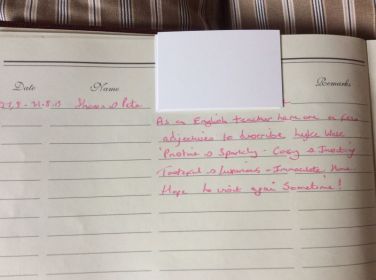 Date Name Remarks
& Pete
As an English teacher here are a few
adjectives to describe Wake
'Pristine & Sparkly - Cosy & Inviting
Tasteful & Luxurious - Immaculate Home.
Hope to visit again Sometime!